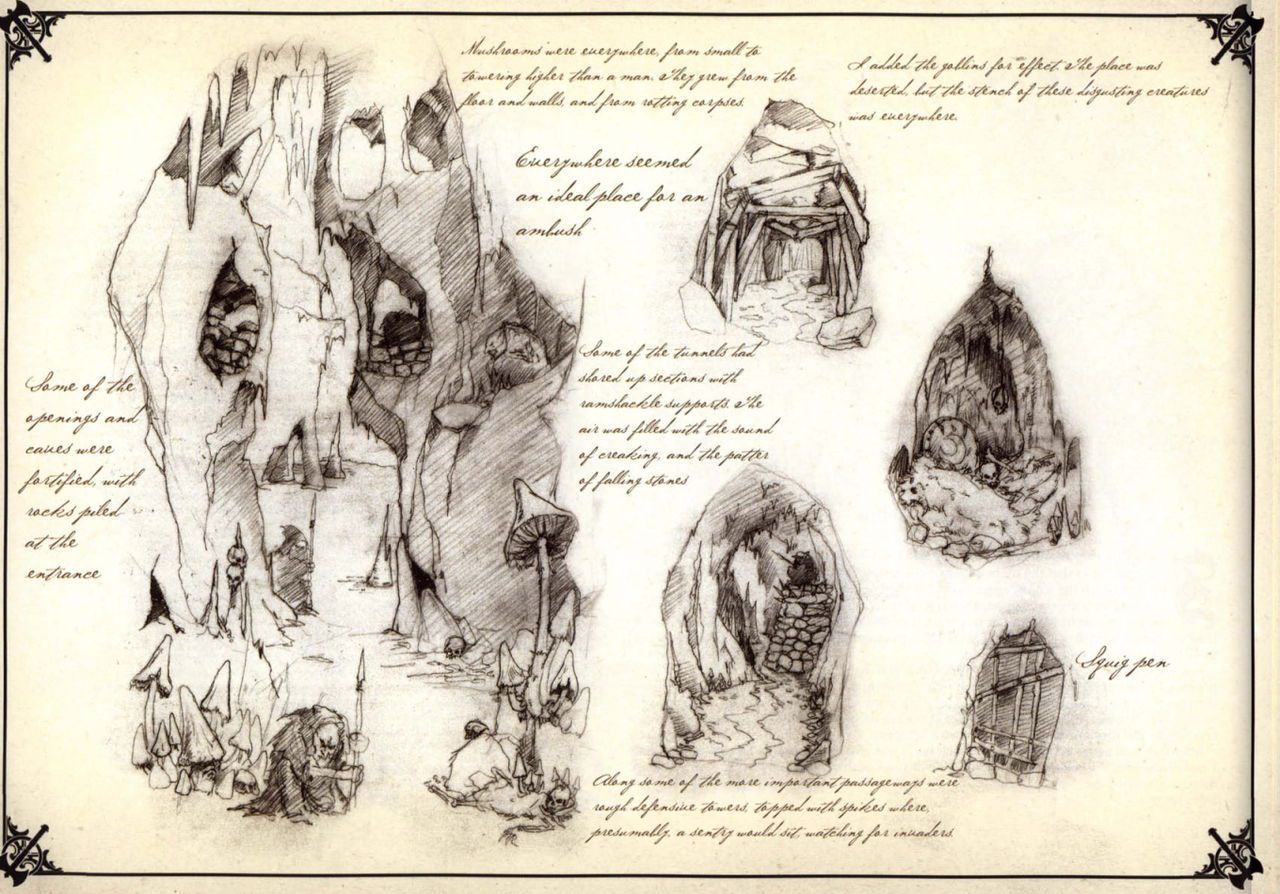 Mushrooms were everywhere, from small to
towering higher than a man. They grew from the
floor and walls, and from rotting corpses.
I added the goblins for effect. The place was
deserted, but the stench of these disgusting creatures
was everywhere.
Everywhere seemed
an ideal place for an
ambush
Some of the
openings and
caves were
fortified, with
rocks piled
at the
entrance
Some of the tunnels had
shored up sections with
ramshackle supports. The
air was filled with the sound
of creaking, and the patter
of falling stones
Squig pen
Along some of the more important passageways were
rough defensive towers, topped with spikes where,
presumably, a sentry would sit, watching for invaders.